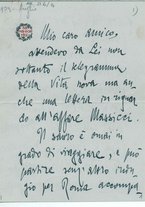 1)
Mio caro amico,
attendevo da Lei non
soltanto il telegramma
della Vita nova ma an-
che una lettera in riguar-
do all'affare Massicci.
Il sauro è omai in
grado di viaggiare, e può
partire senz'altro indu-
gio per Roma accompa-